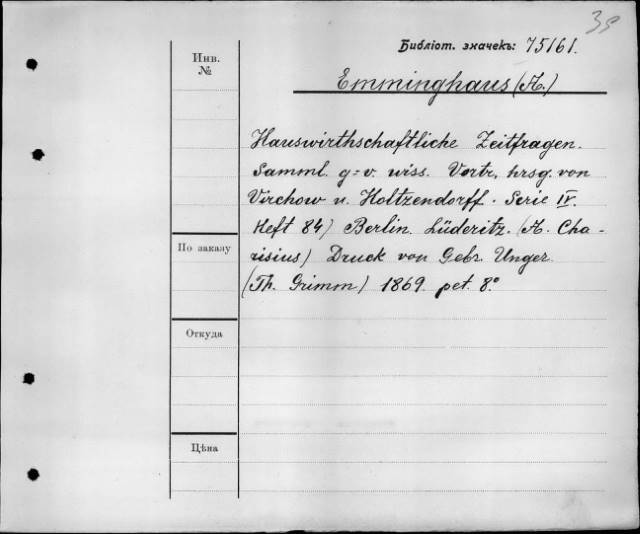 39
Библіот. значекъ: 75161.
Инв.
№
Emminghaus (A.)
Hauswirthschaftliche Zeitfragen.
Samml. g=v. wiss. Vortr. hrsg. von
Virchow u. Holtzendorff. Serie IV.
Heft 84) Berlin. Lüderitz. (A. Cha-
risius) Druck von Gebr. Unger
(Th. Grimm) 1869. pet. 8°
По заказу
Откуда
Цѣна